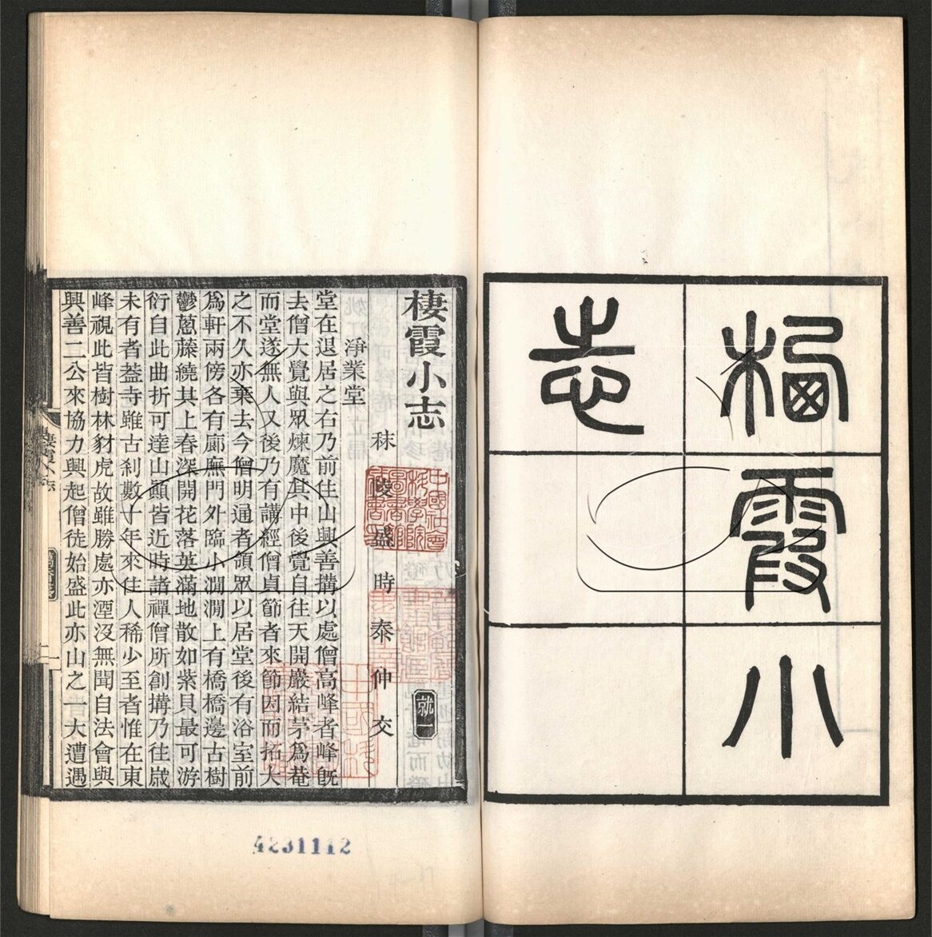 棲霞小
志
棲霞小志
就一
秣陵盛時泰仲交
淨業堂
堂在退居之右乃前住山興善搆以處僧高峰者峰旣
去僧大覺與眾煉魔其中後覺自往天開巖結茅爲菴
而堂遂無人又後乃有講經僧貞節者來節因而拓大
之不久亦棄去今僧明通者領眾以居堂後有浴室前
爲軒兩傍各有廊廡門外臨小澗澗上有橋橋邊古樹
鬱蔥藤繞其上春深開花落英滿地散如紫貝最可游
衍自此曲折可達山顛皆近時諸禪僧所創搆乃往嵗
未有者葢寺雖古刹數十年來住人稀少至者惟在東
峰視此皆樹林豺虎故雖勝處亦湮沒無聞自法會與
興善二公來協力興起僧徒始盛此亦山之一大遭遇
4231112